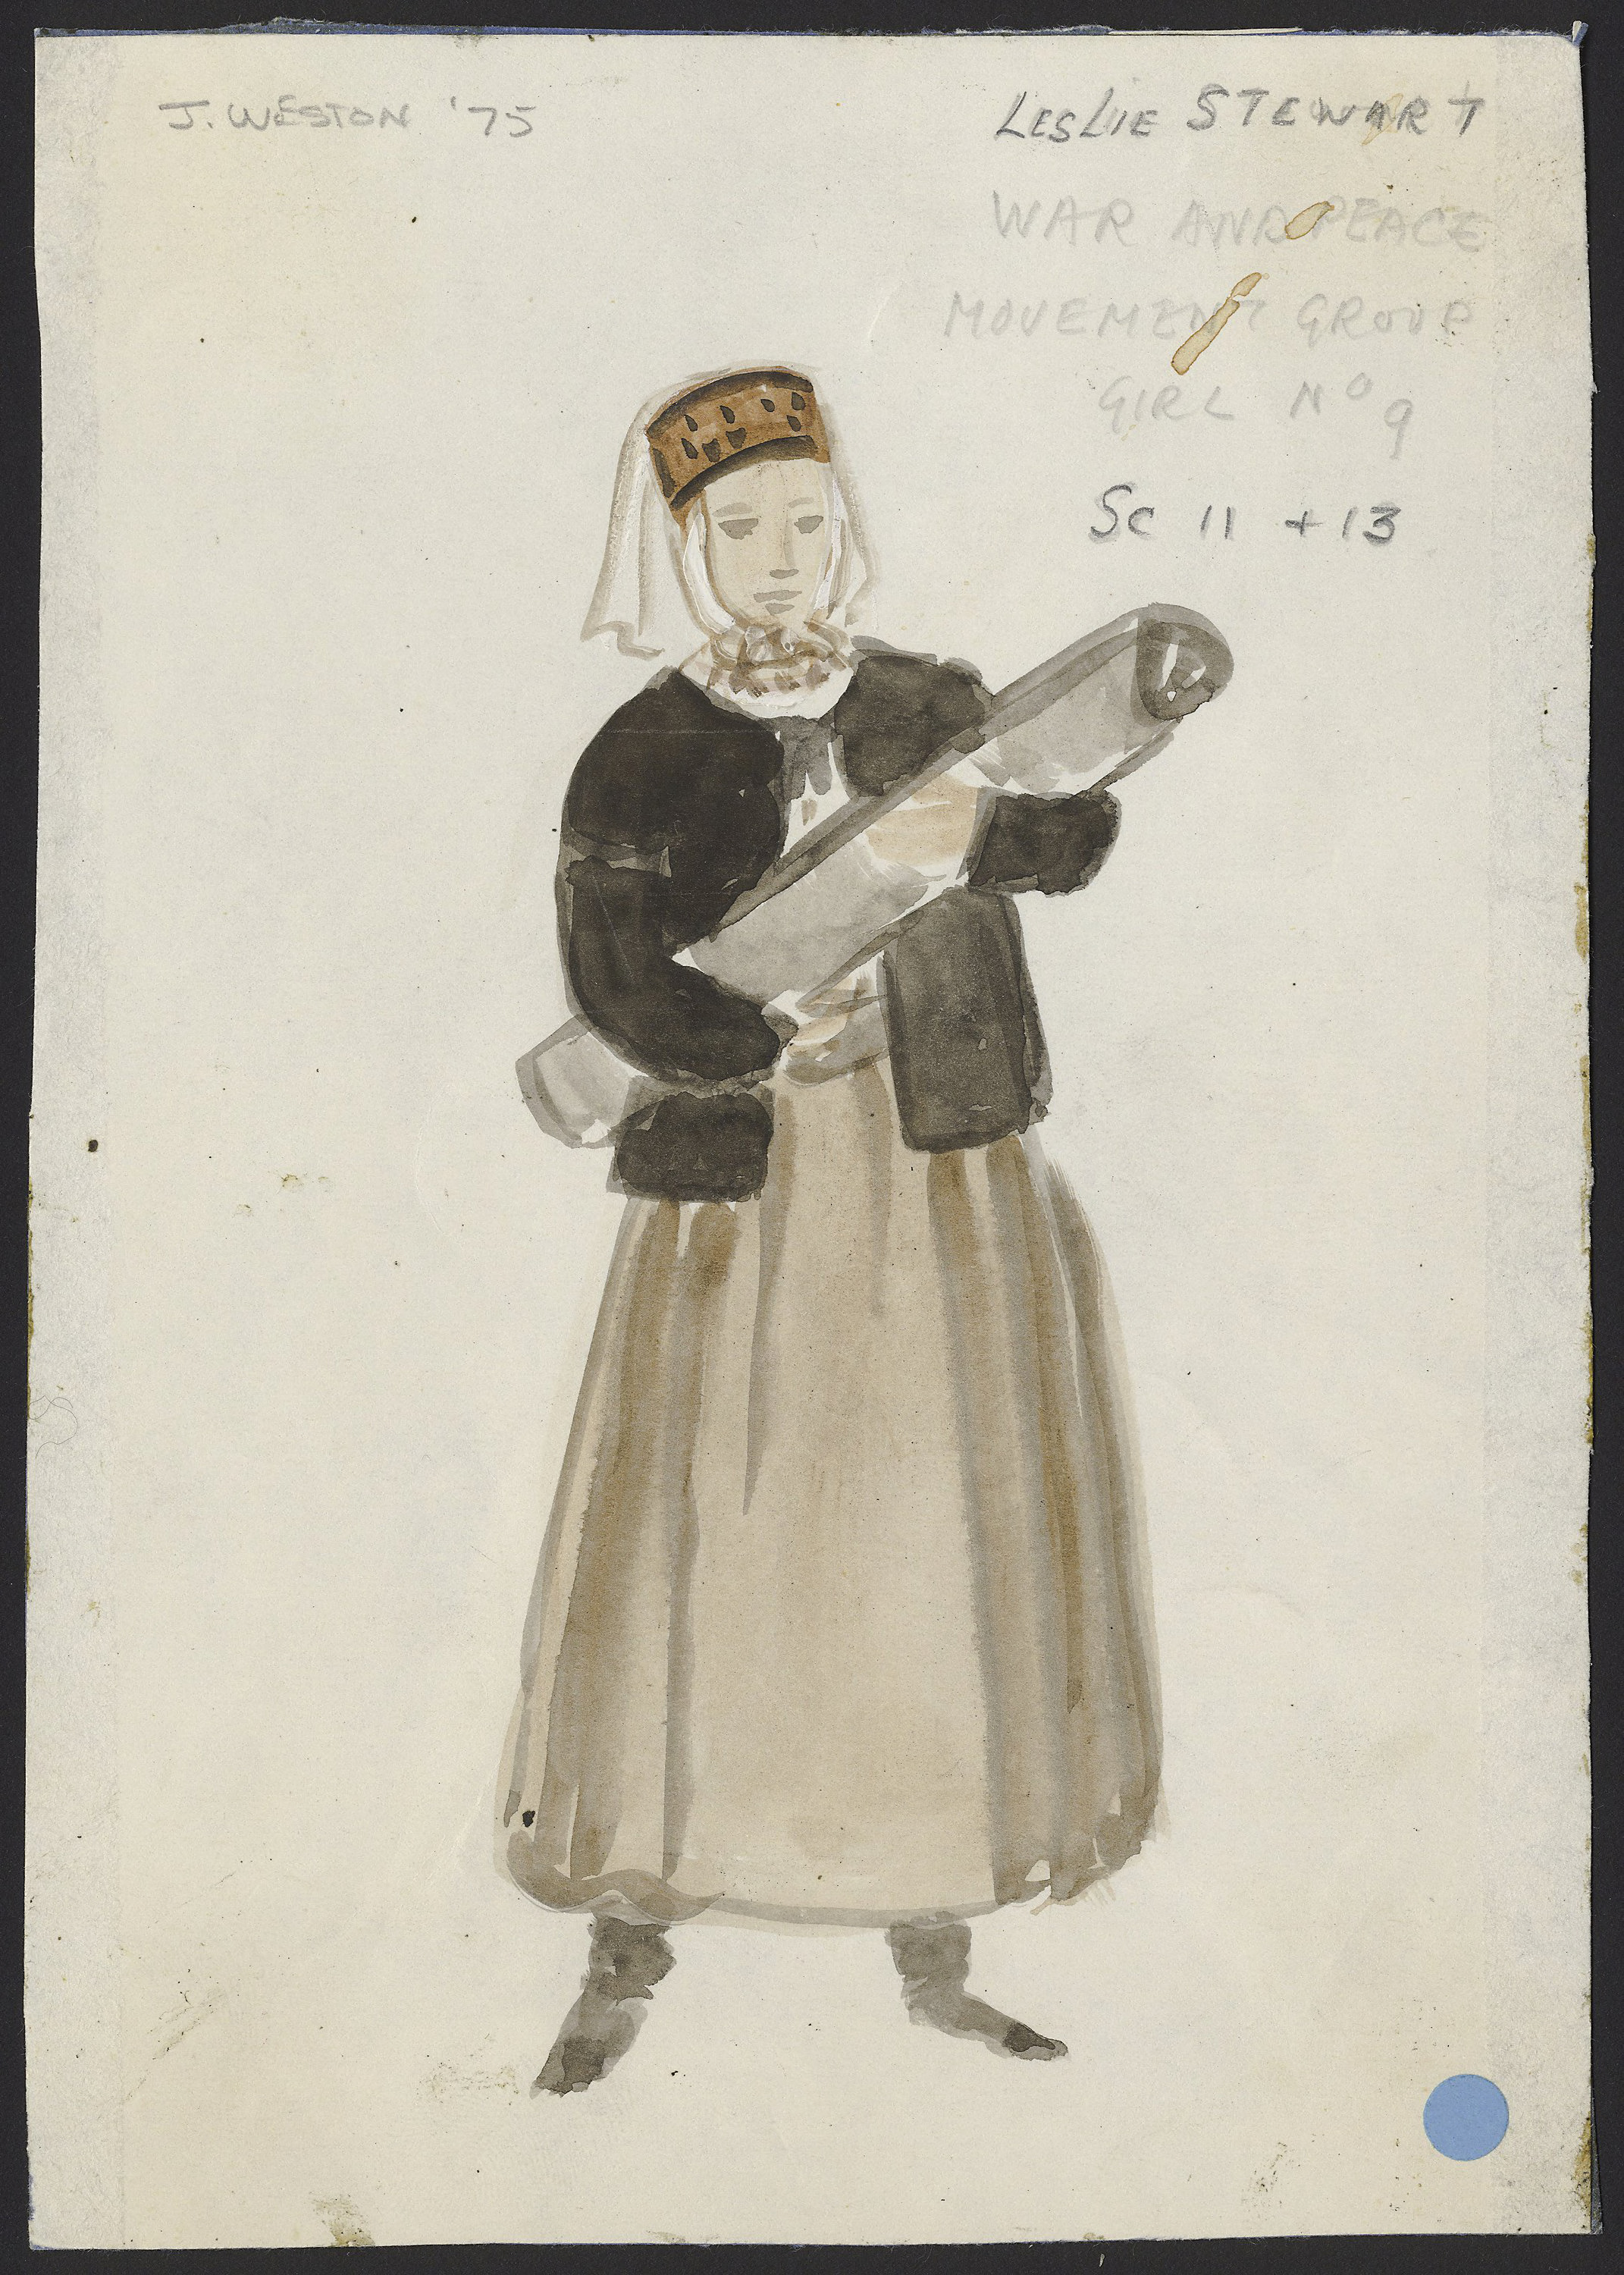 J. WESTON '75
LESLIE STEWART
WAR AND PEACE
MOVEMENT GROUP
GIRL Nº 9
Sc 11 + 13